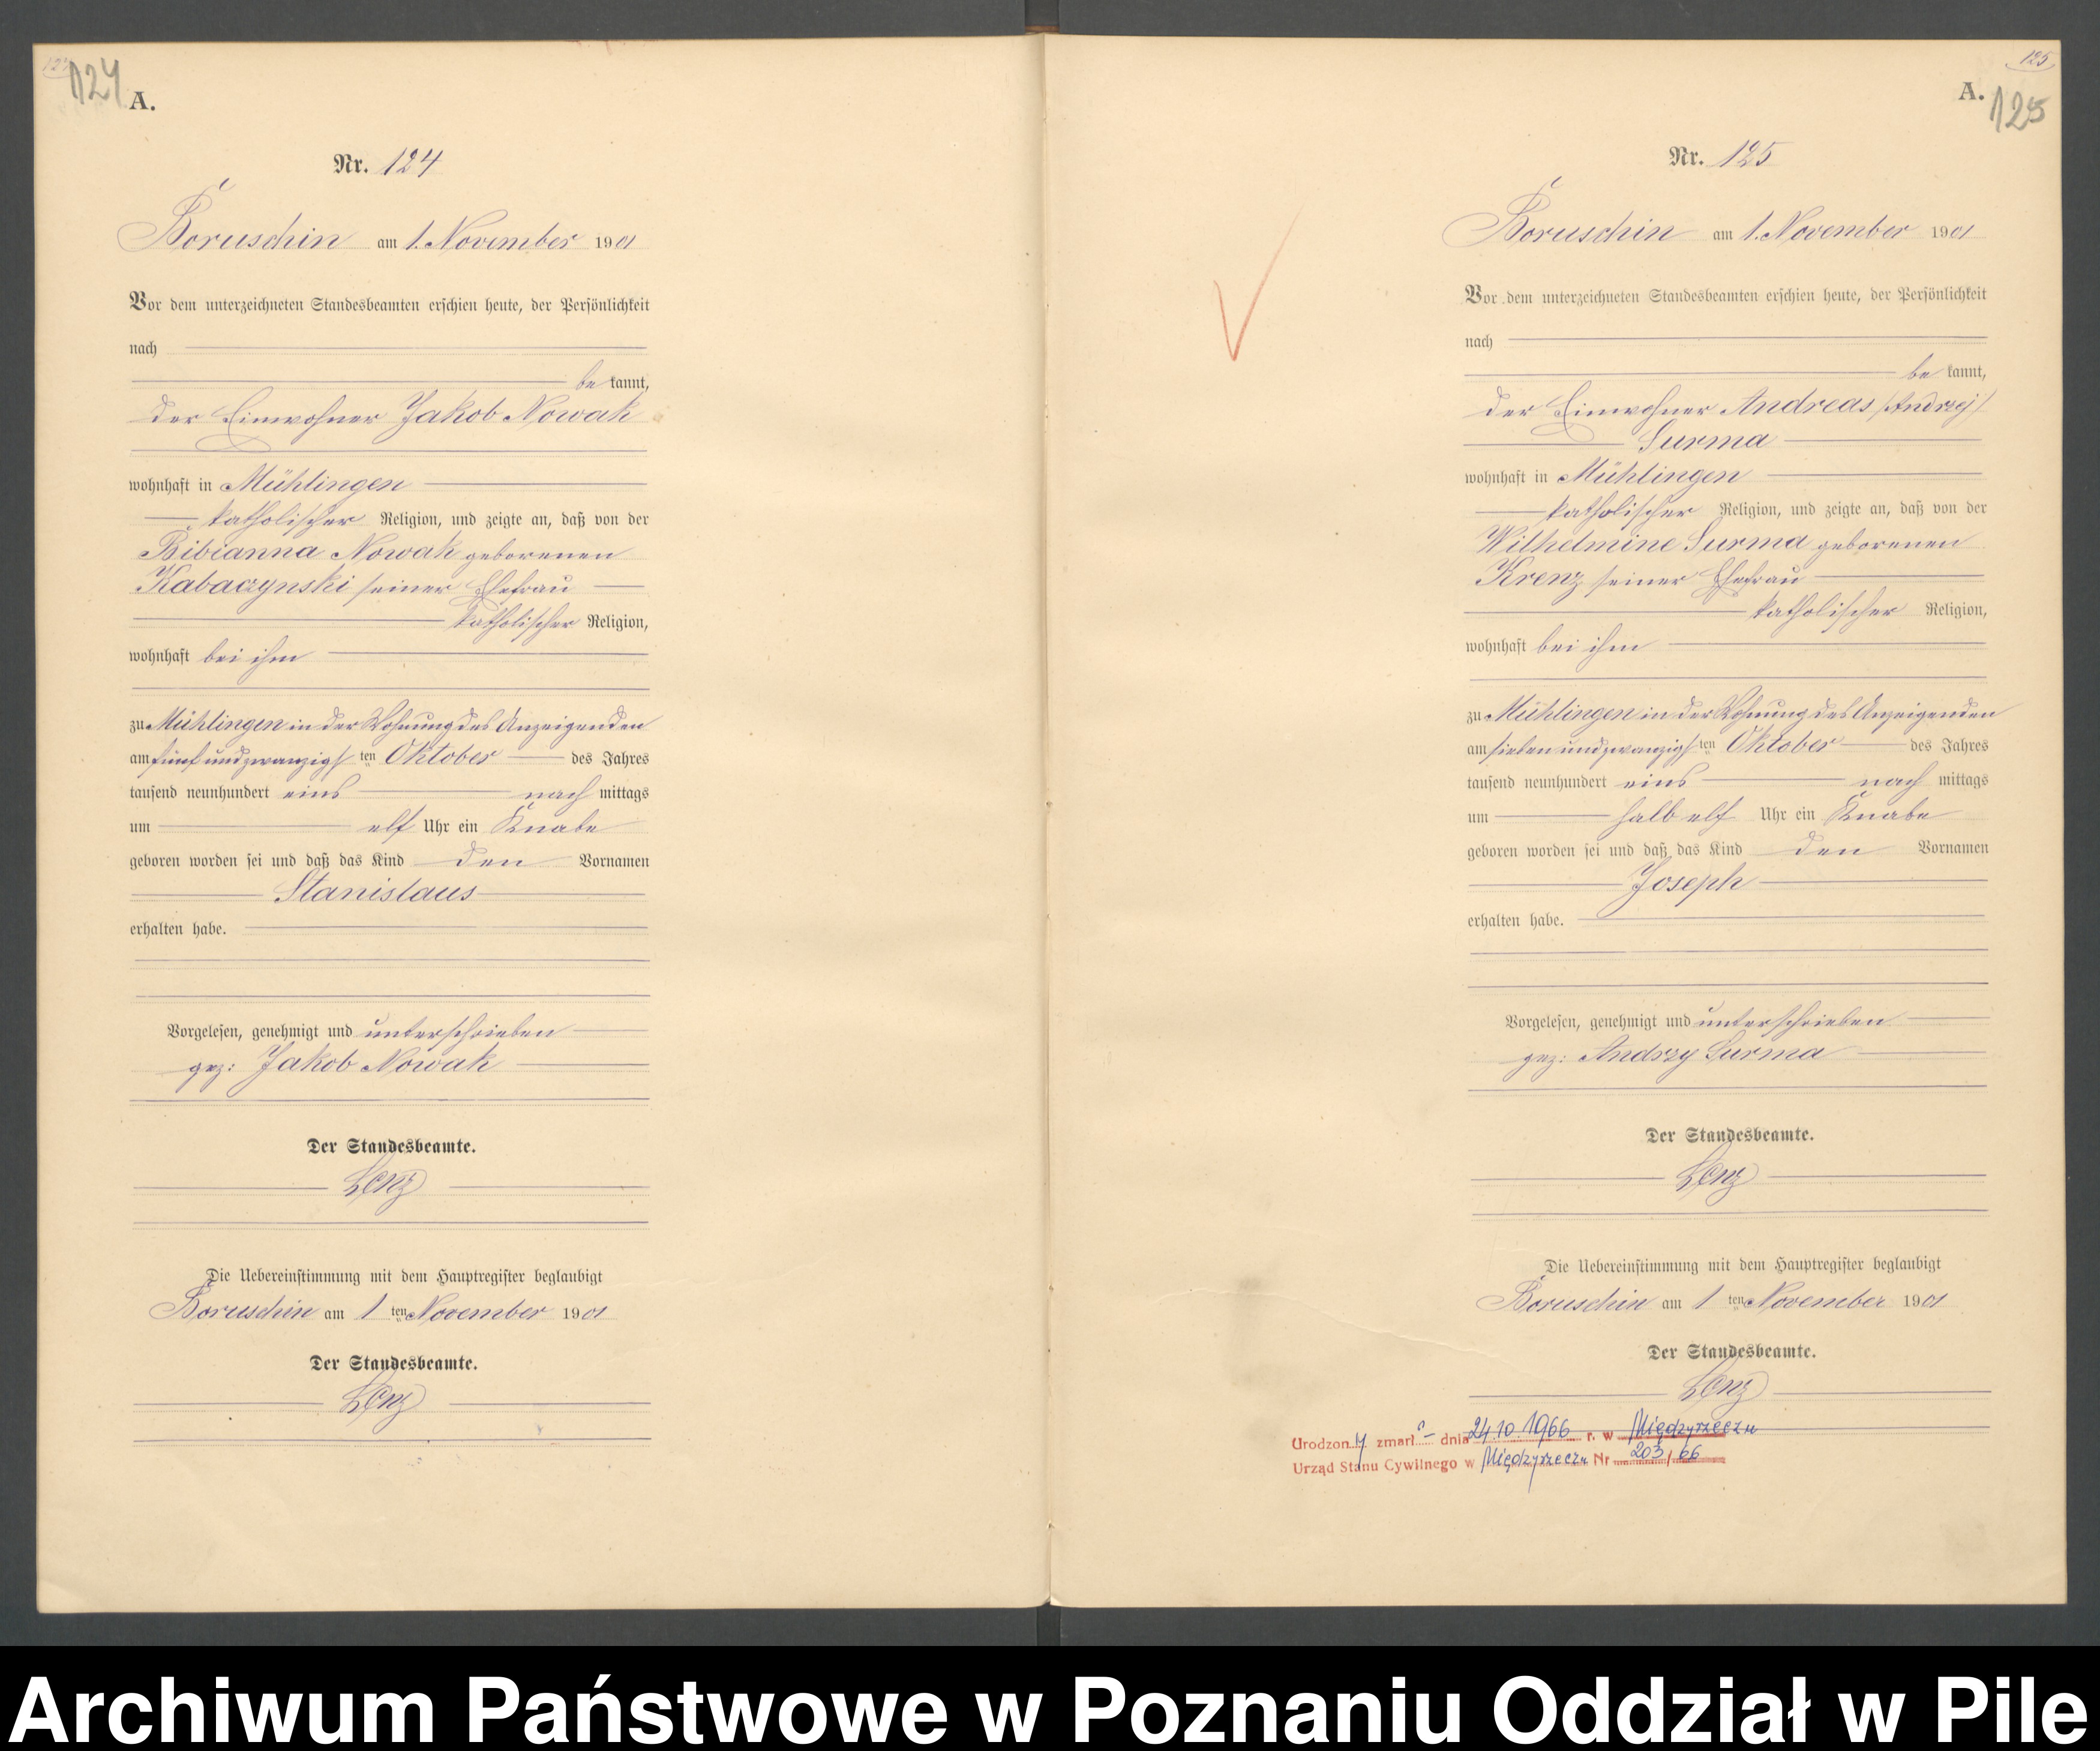 124
A.
Nr. 124
Boruschin am 1. November 1901
Vor dem unterzeichneten Standesbeamten erschien heute, der Persönlichkeit
nach
be kannt,
der Einwohner Jakob Nowak
wohnhaft in Mühlingen
katholischer Religion, und zeigte an, daß von der
Bibianna Nowak geborenen
Kabaczynski seiner Ehefrau
katholischer Religion,
wohnhaft bei ihm
zu Mühlingen in der Wohnung des Anzeigenden
am fünfundzwanzigsten Oktober des Jahres
tausend neunhundert eins nach mittags
um elf Uhr ein Knabe
geboren worden sei und daß das Kind den Vornamen
Stanislaus
erhalten habe.
Vorgelesen, genehmigt und unterschrieben
gez: Jakob Nowak
Der Standesbeamte.
Lenz
Die Uebereinstimmung mit dem Hauptregister beglaubigt
Boruschin am 1 ten November 1901
Der Standesbeamte.
Lenz
125
A.
125
Nr. 125
Boruschin am 1. November 1901
Vor dem unterzeichneten Standesbeamten erschien heute, der Persönlichkeit
nach
be kannt,
der Einwohner Andreas /Andrzej/
Surma
wohnhaft in Mühlingen
katholischer Religion, und zeigte an, daß von der
Wilhelmine Surma geborenen
Krenz seiner Ehefrau
katholischer Religion,
wohnhaft bei ihm
zu Mühlingen in der Wohnung des Anzeigenden
am siebenundzwanzigsten Oktober des Jahres
tausend neunhundert eins nach mittags
um halb elf Uhr ein Knabe
geboren worden sei und daß das Kind den Vornamen
Joseph
erhalten habe.
Vorgelesen, genehmigt und unterschrieben
gez: Andrzy Surma
Der Standesbeamte.
Lenz
Die Uebereinstimmung mit dem Hauptregister beglaubigt
Boruschin am 1 ten November 1901
Der Standesbeamte.
Lenz
Urodzony zmarł – dnia 24.10.1966 r. w Międzyrzeczu
Urząd Stanu Cywilnego w Międzyrzeczu Nr 203/66
Archiwum Państwowe w Poznaniu Oddział w Pile